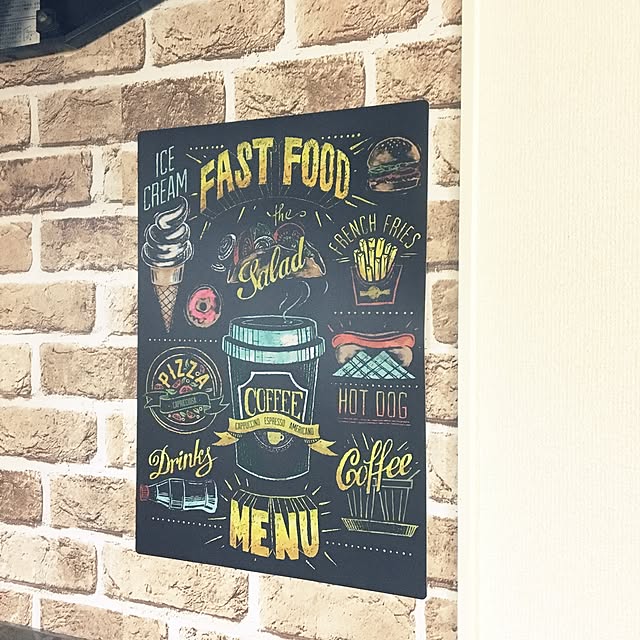 FAST FOOD
ICE
CREAM
the
Salad
FRENCH FRIES
PIZZA
CAPRICCIOSA
COFFEE
CAPPUCCINO ESPRESSO AMERICANO
HOT DOG
Drinks
Coffee
MENU